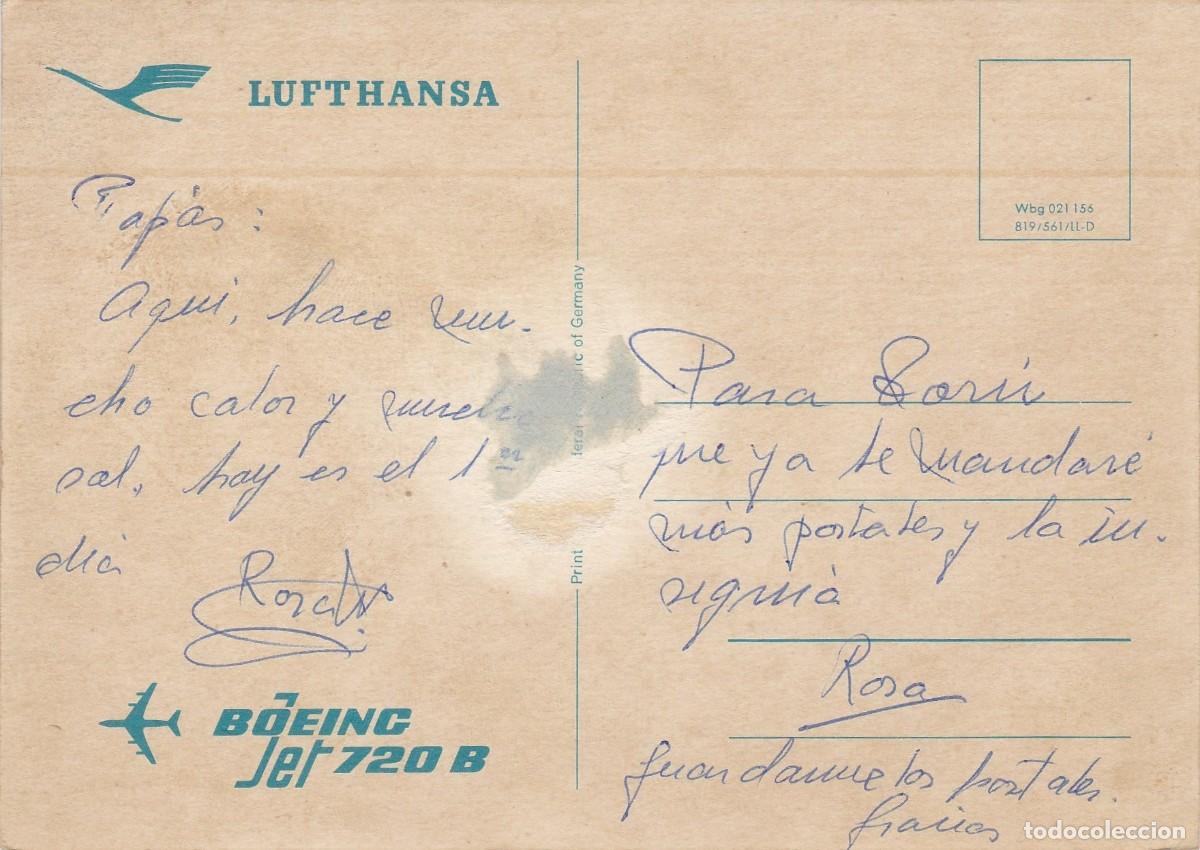 LUFTHANSA
Papás:
Aqui, hace mu-
cho calor y mucho
sol, hoy es el 1er
dia
Rosa
BOEING
Jet 720 B
Print
of Germany
Wbg 021 156
819/561/LL-D
Para
que ya te mandaré
más postales y la in-
signia
Rosa
Guardarme los postales.
Gracias
todocoleccion